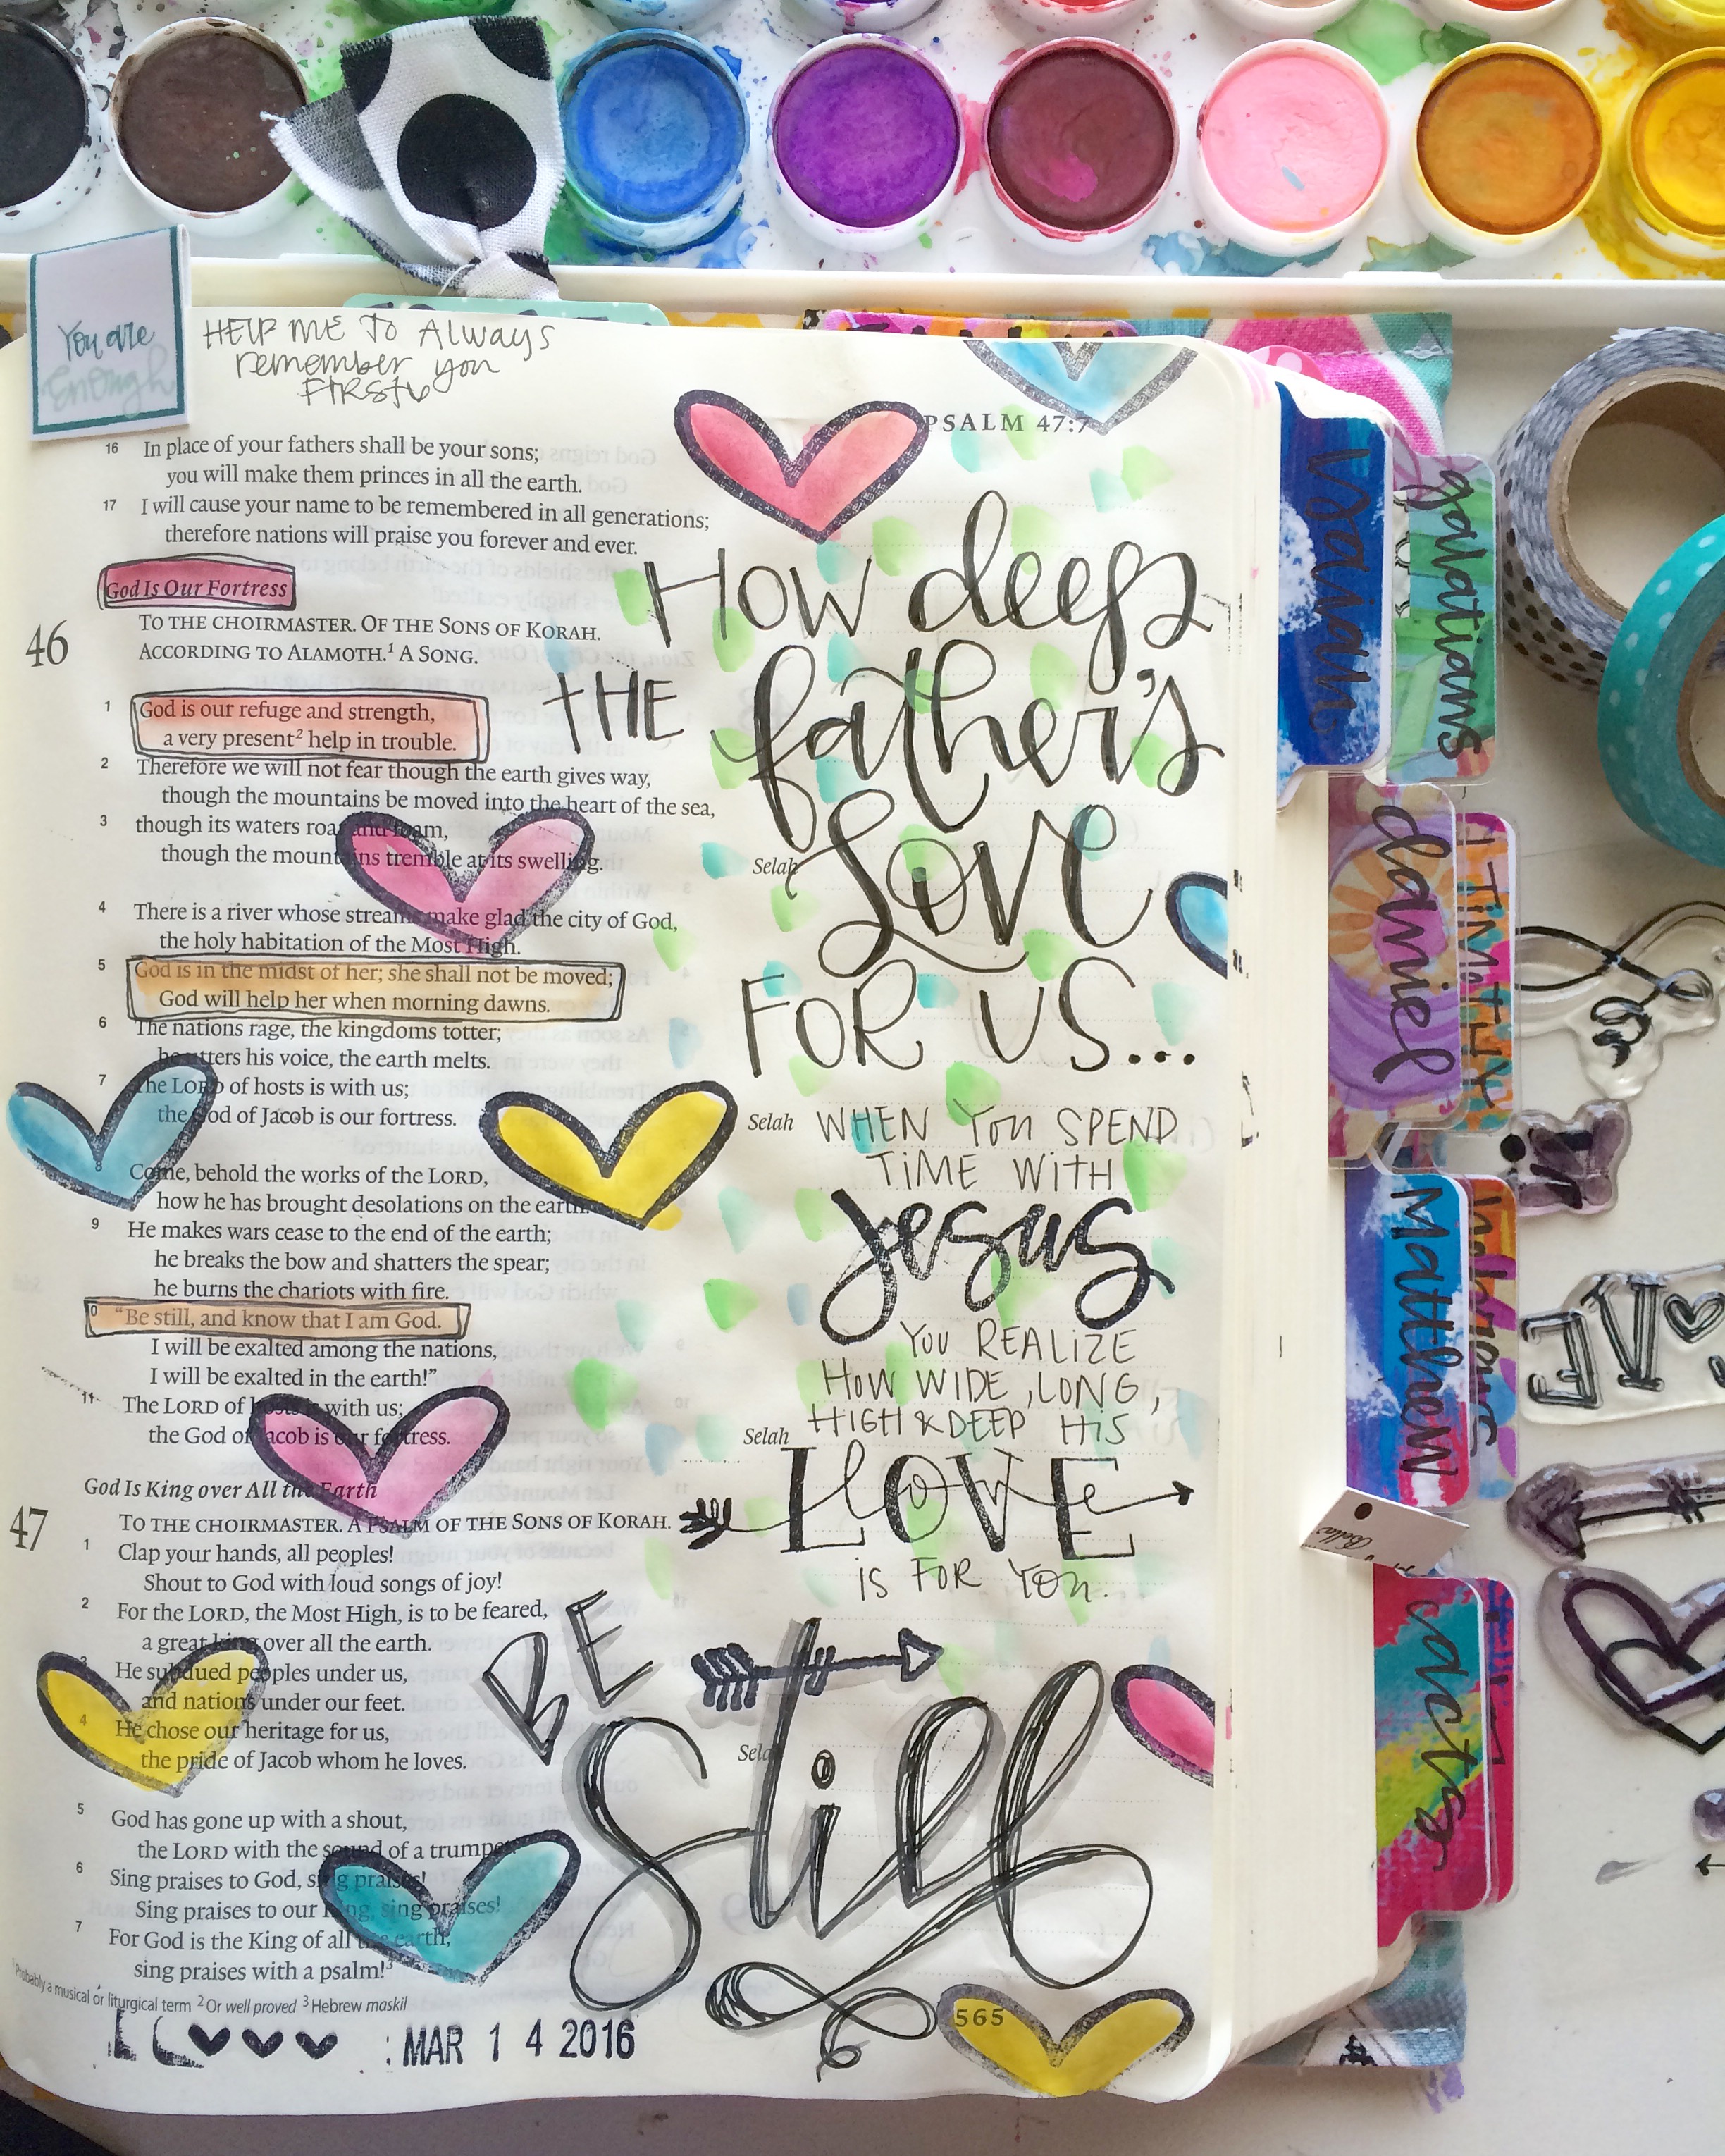 You are
enough
HELP ME TO Always
remember you
FIRST
PSALM 47:7
16 In place of your fathers shall be your sons;
you will make them princes in all the earth.
17 I will cause your name to be remembered in all generations;
therefore nations will praise you forever and ever.
God Is Our Fortress
46 TO THE CHOIRMASTER. OF THE SONS OF KORAH.
ACCORDING TO ALAMOTH.1 A SONG.
1 God is our refuge and strength,
a very present2 help in trouble.
2 Therefore we will not fear though the earth gives way,
though the mountains be moved into the heart of the sea,
3 though its waters roar and foam,
though the mountains tremble at its swelling. Selah
4 There is a river whose streams make glad the city of God,
the holy habitation of the Most High.
5 God is in the midst of her; she shall not be moved;
God will help her when morning dawns.
6 The nations rage, the kingdoms totter;
he utters his voice, the earth melts.
7 The LORD of hosts is with us;
the God of Jacob is our fortress. Selah
8 Come, behold the works of the LORD,
how he has brought desolations on the earth.
9 He makes wars cease to the end of the earth;
he breaks the bow and shatters the spear;
he burns the chariots with fire.
0 “Be still, and know that I am God.
I will be exalted among the nations,
I will be exalted in the earth!”
11 The LORD of hosts is with us;
the God of Jacob is our fortress. Selah
God Is King over All the Earth
47 TO THE CHOIRMASTER. A PSALM OF THE SONS OF KORAH.
1 Clap your hands, all peoples!
Shout to God with loud songs of joy!
2 For the LORD, the Most High, is to be feared,
a great king over all the earth.
3 He subdued peoples under us,
and nations under our feet.
4 He chose our heritage for us,
the pride of Jacob whom he loves. Selah
5 God has gone up with a shout,
the LORD with the sound of a trumpet.
6 Sing praises to God, sing praises!
Sing praises to our King, sing praises!
7 For God is the King of all the earth;
sing praises with a psalm!3
1 Probably a musical or liturgical term 2 Or well proved 3 Hebrew maskil
: MAR 1 4 2016
HOW deep
THE father's
Love
FOR US...
WHEN YOU SPEND
TIME WITH
Jesus
YOU REALIZE
HOW WIDE, LONG,
HIGH & DEEP HIS
LOVE
IS FOR YOU.
BE
Still
565
galatians
daniel
1 TIMOTHY
Matthew
acts
Bella